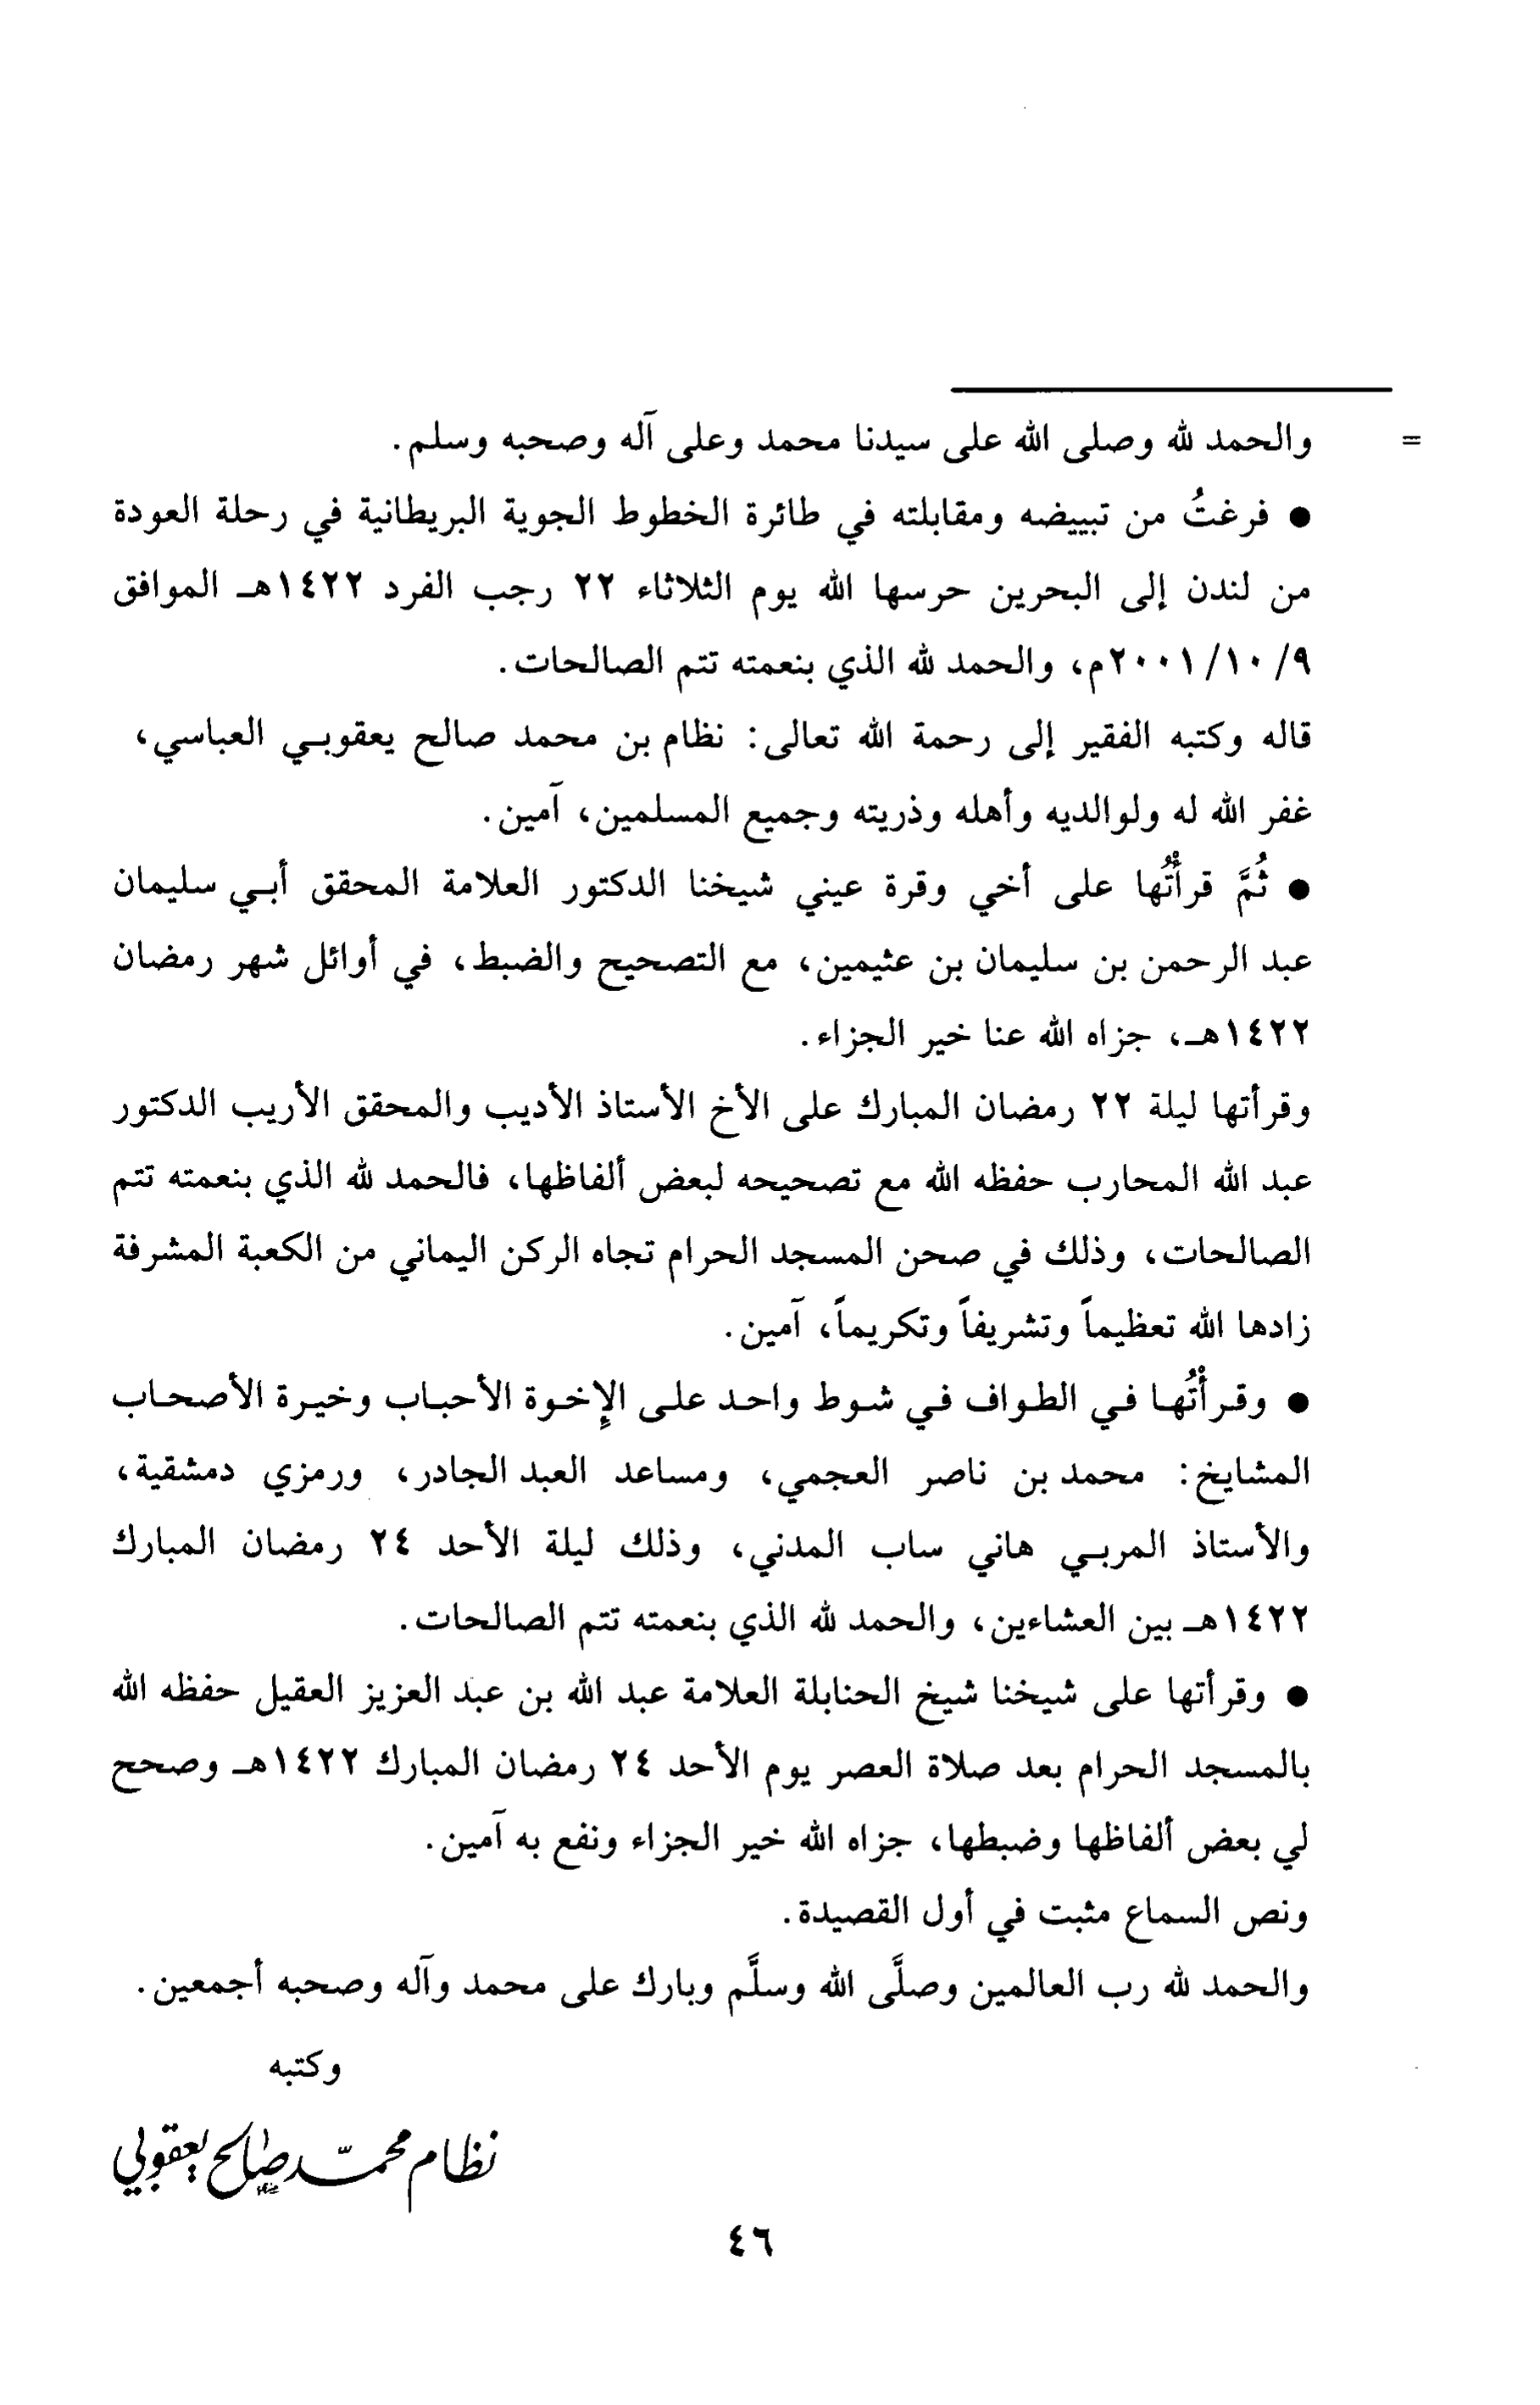 = والحمد لله وصلى الله على سيدنا محمد وعلى آله وصحبه وسلم.
● فرغتُ من تبييضه ومقابلته في طائرة الخطوط الجوية البريطانية في رحلة العودة
من لندن إلى البحرين حرسها الله يوم الثلاثاء ٢٢ رجب الفرد ١٤٢٢هـ الموافق
٩/ ١٠/ ٢٠٠١م، والحمد لله الذي بنعمته تتم الصالحات.
قاله وكتبه الفقير إلى رحمة الله تعالى: نظام بن محمد صالح يعقوبي العباسي،
غفر الله له ولوالديه وأهله وذريته وجميع المسلمين، آمين.
● ثُمَّ قرأتُها على أخي وقرة عيني شيخنا الدكتور العلامة المحقق أبي سليمان
عبد الرحمن بن سليمان بن عثيمين، مع التصحيح والضبط، في أوائل شهر رمضان
١٤٢٢هـ، جزاه الله عنا خير الجزاء.
وقرأتها ليلة ٢٢ رمضان المبارك على الأخ الأستاذ الأديب والمحقق الأريب الدكتور
عبد الله المحارب حفظه الله مع تصحيحه لبعض ألفاظها، فالحمد لله الذي بنعمته تتم
الصالحات، وذلك في صحن المسجد الحرام تجاه الركن اليماني من الكعبة المشرفة
زادها الله تعظيماً وتشريفاً وتكريماً، آمين.
● وقرأتُها في الطواف في شوط واحد على الإخوة الأحباب وخيرة الأصحاب
المشايخ: محمد بن ناصر العجمي، ومساعد العبد الجادر، ورمزي دمشقية،
والأستاذ المربي هاني ساب المدني، وذلك ليلة الأحد ٢٤ رمضان المبارك
١٤٢٢هـ بين العشاءين، والحمد لله الذي بنعمته تتم الصالحات.
● وقرأتها على شيخنا شيخ الحنابلة العلامة عبد الله بن عبد العزيز العقيل حفظه الله
بالمسجد الحرام بعد صلاة العصر يوم الأحد ٢٤ رمضان المبارك ١٤٢٢هـ وصحح
لي بعض ألفاظها وضبطها، جزاه الله خير الجزاء ونفع به آمين.
ونص السماع مثبت في أول القصيدة.
والحمد لله رب العالمين وصلَّى الله وسلَّم وبارك على محمد وآله وصحبه أجمعين.
وكتبه
نظام محمّد صالح يعقوبي
٤٦